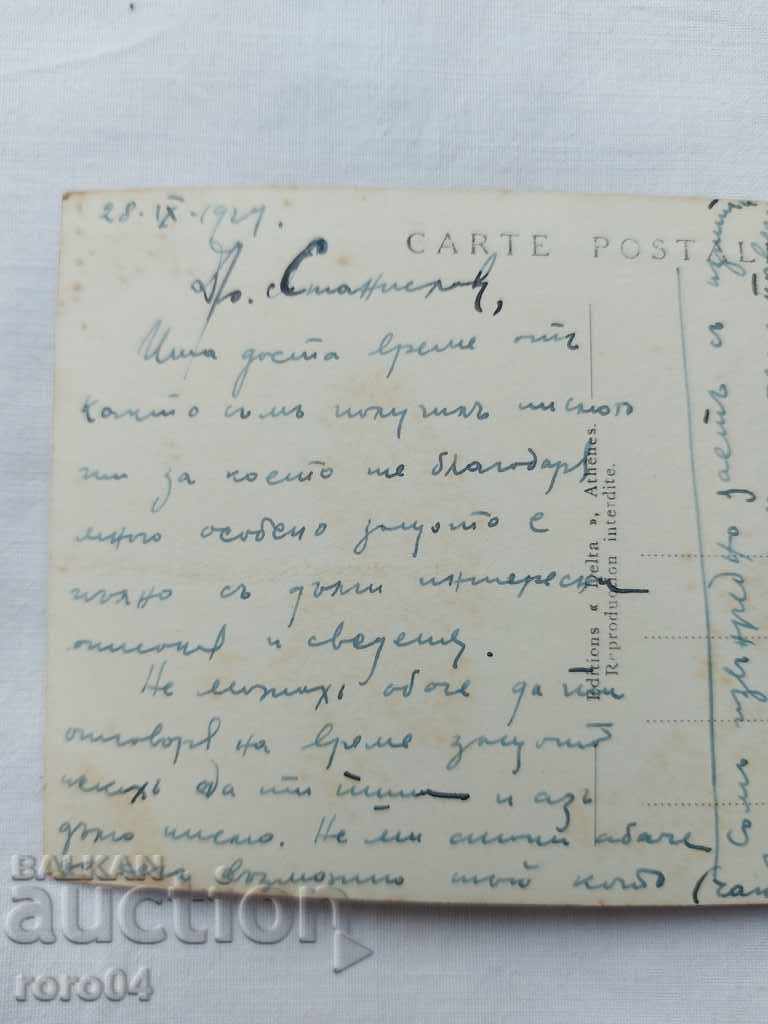 28·IX·1927.
CARTE POSTAL
Др. Станислав,
Има доста време отъ
както съмъ получилъ писмото
ти за което те благодаря
много особено защото е
пълно съ дълги интересни
описания и сведения.
Не можахъ обаче да ти
отговоря на време защото
искахъ да ти пиша и азъ
дълго писмо. Не ми стана обаче
възможно тъй като (
Editions « Delta », Athènes.
Reproduction interdite.
съмъ извънредно заетъ съ
BALKAN
auction
roro04